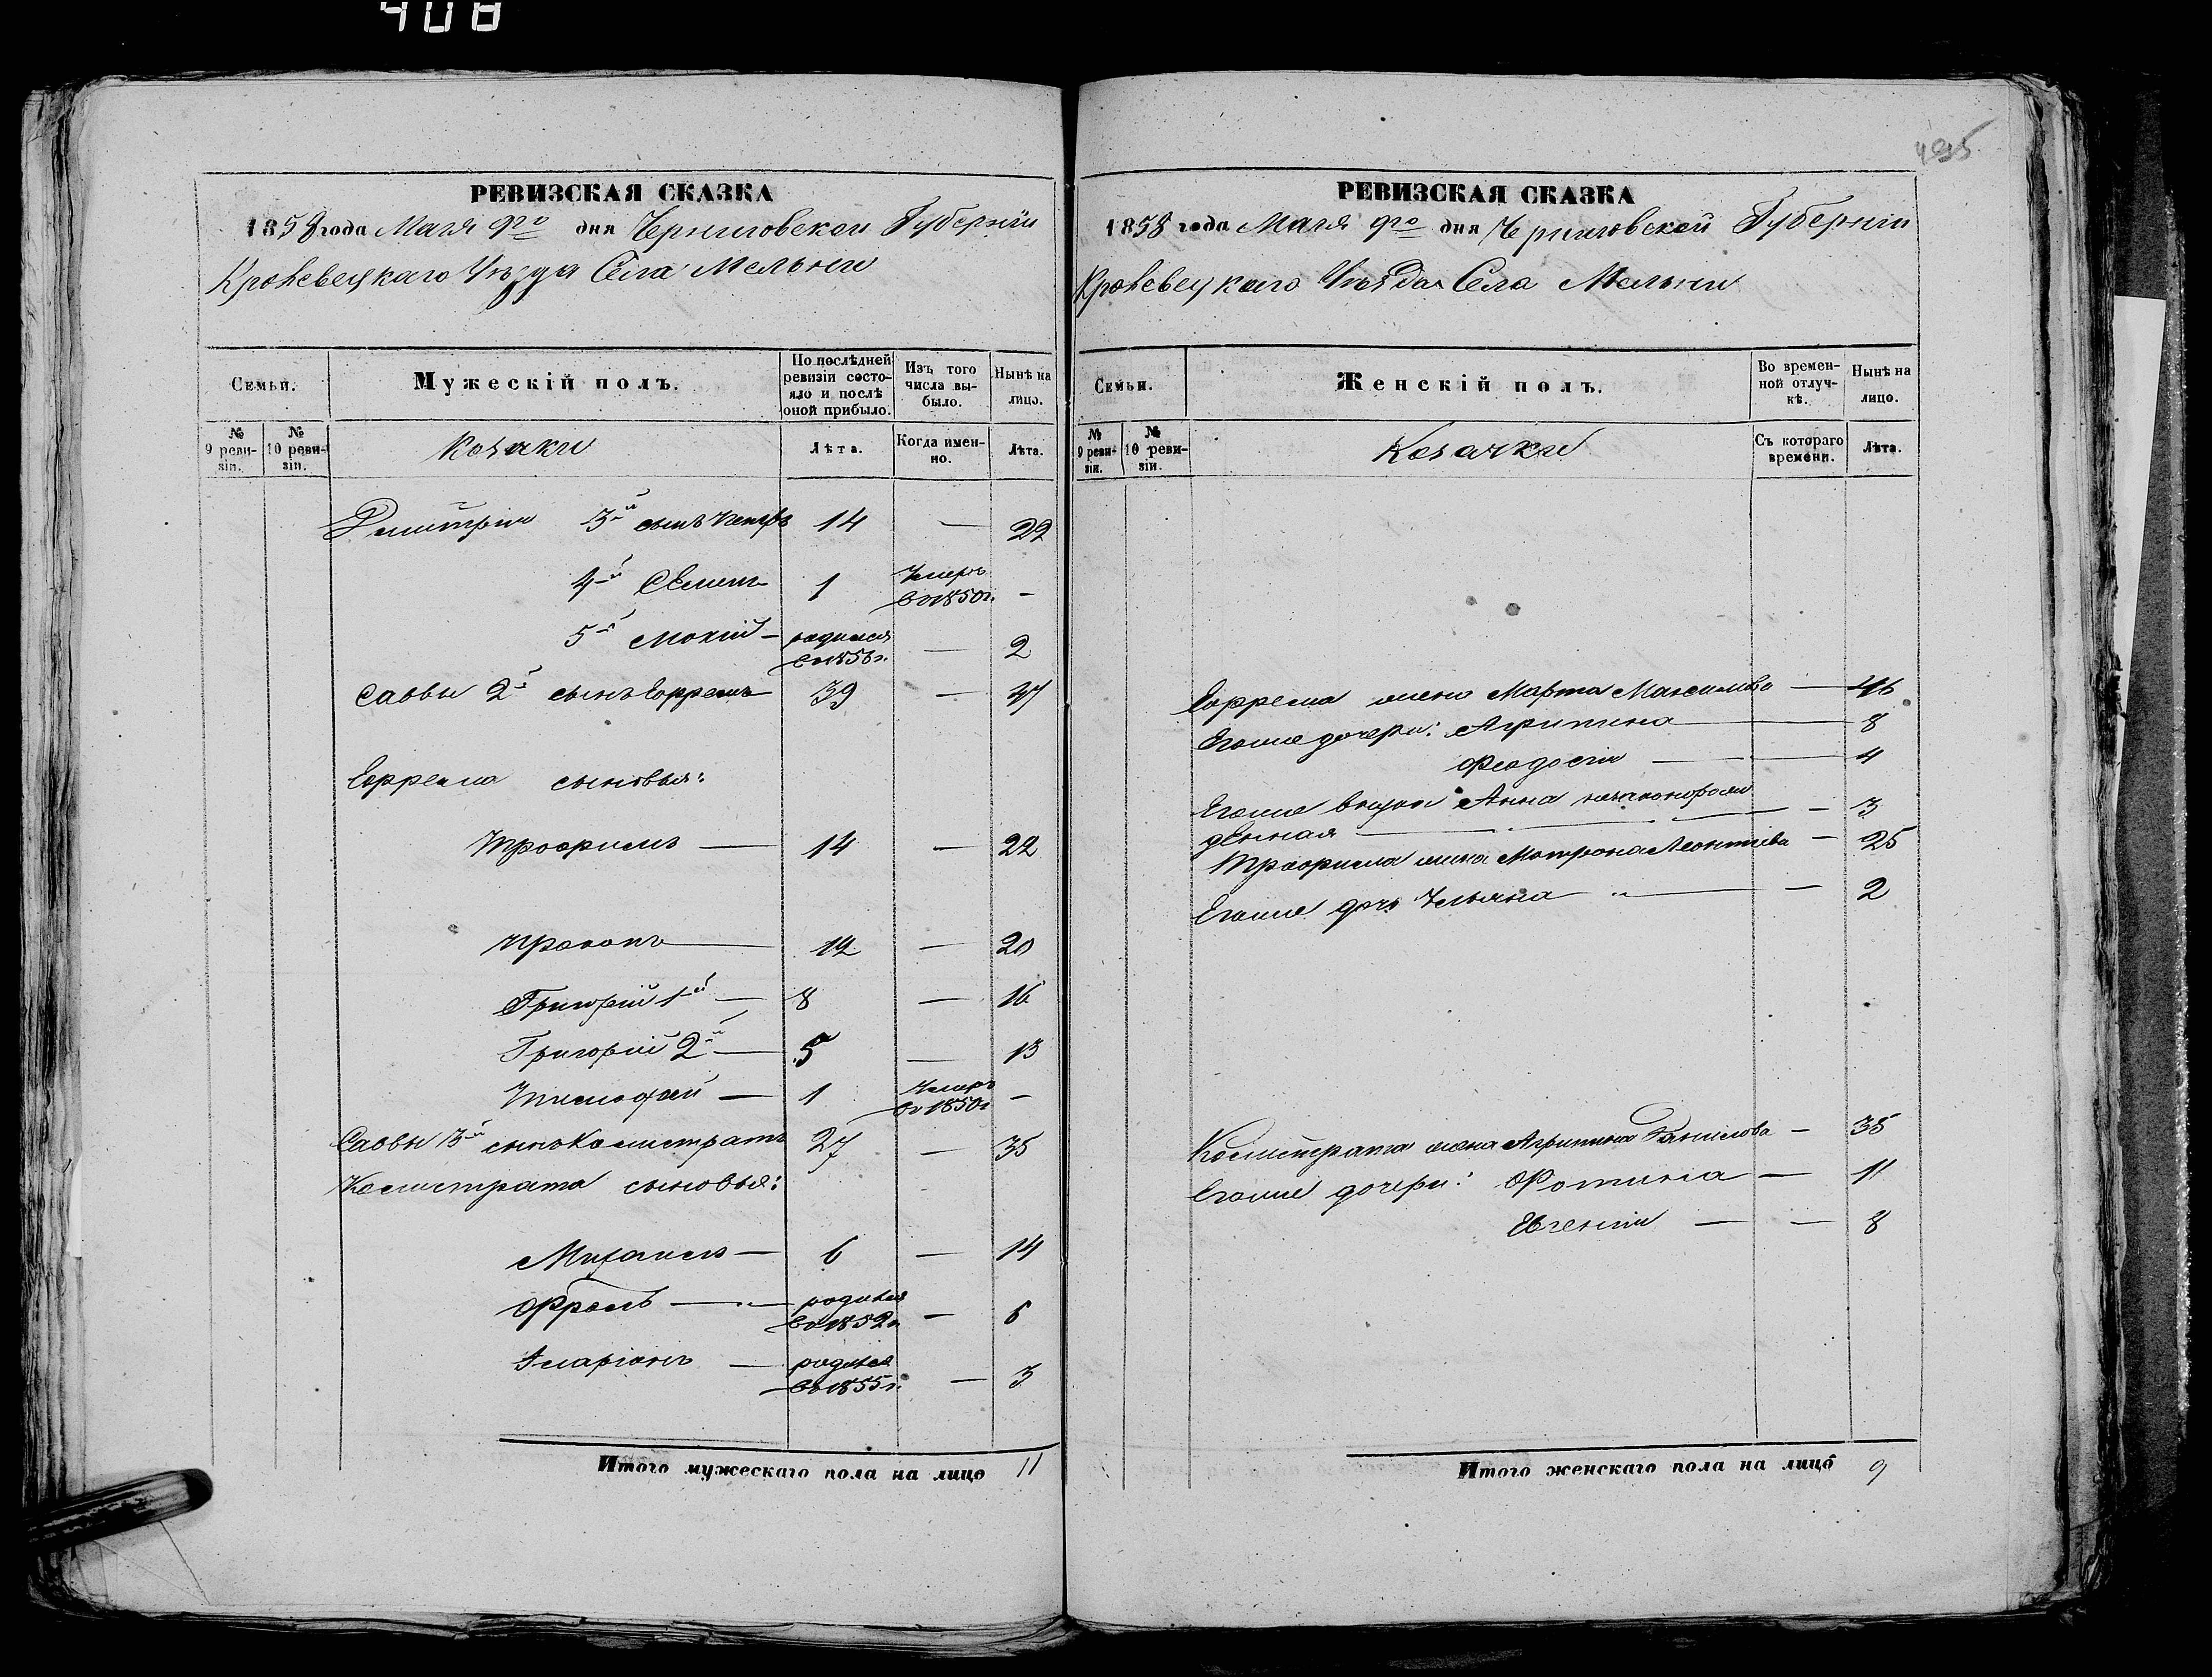 408
495
РЕВИЗСКАЯ СКАЗКА
1858 года Мая 9го дня Черниговской Губерніи
Кролевецкаго Уѣзда Села Мельни
Семьи.
Мужескій полъ.
По послѣдней ревизіи состояло и послѣ оной прибыло.
Изъ того числа выбыло.
Нынѣ на лицо.
№ 9 ревизіи.
№ 10 ревизіи.
Козаки
Лѣта.
Когда именно.
Лѣта.
Дмитрія 3й сынъ Петръ 14 — 22
4й Семенъ 1 Умеръ въ 1850г. -
5й Мокій - родился въ 1856г. — 2
Саввы 2й сынъ Ефремъ 39 — 47
Ефрема сыновья:
Трофимъ — 14 — 22
Прокопъ — 12 — 20
Григорій 1й — 8 — 16
Григорій 2й — 5 — 13
Тимофей — 1 Умеръ въ 1850г -
Саввы 3й сынъ Калистратъ 27 — 35
Калистрата сыновья:
Михаилъ — 6 — 14
Фролъ — родился въ 1852г — 6
Иларіонъ — родился въ 1855г. — 3
Итого мужескаго пола на лицо 11
РЕВИЗСКАЯ СКАЗКА
1858 года Мая 9го дня Черниговской Губерніи
Кролевецкаго Уѣзда Села Мельни
Семьи.
Женскій полъ.
Во временной отлучкѣ.
Нынѣ на лицо.
№ 9 ревизіи.
№ 10 ревизіи.
Козачки
Съ котораго времени.
Лѣта.
Ефрема жена Марфа Максимова — 46
Егоже дочери: Агрипина — 8
Феодосія — 4
Егоже внука Анна незаконорож
денная — 3
Трофима жена Мотрона Леонтіева — 25
Егоже дочь Ульяна — 2
Калистрата жена Агрипина Данилова — 35
Егоже дочери: Фотинія — 11
Евгенія — 8
Итого женскаго пола на лицо 9